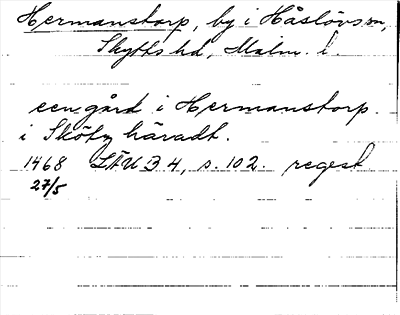 Hermanstorp, by i Håslövs sn,
Skytts hd, Malm. l.
een gård i Hermanstorp.
i Skötz häradt.
1468 LÄU B 4, s. 102. regest
27/5